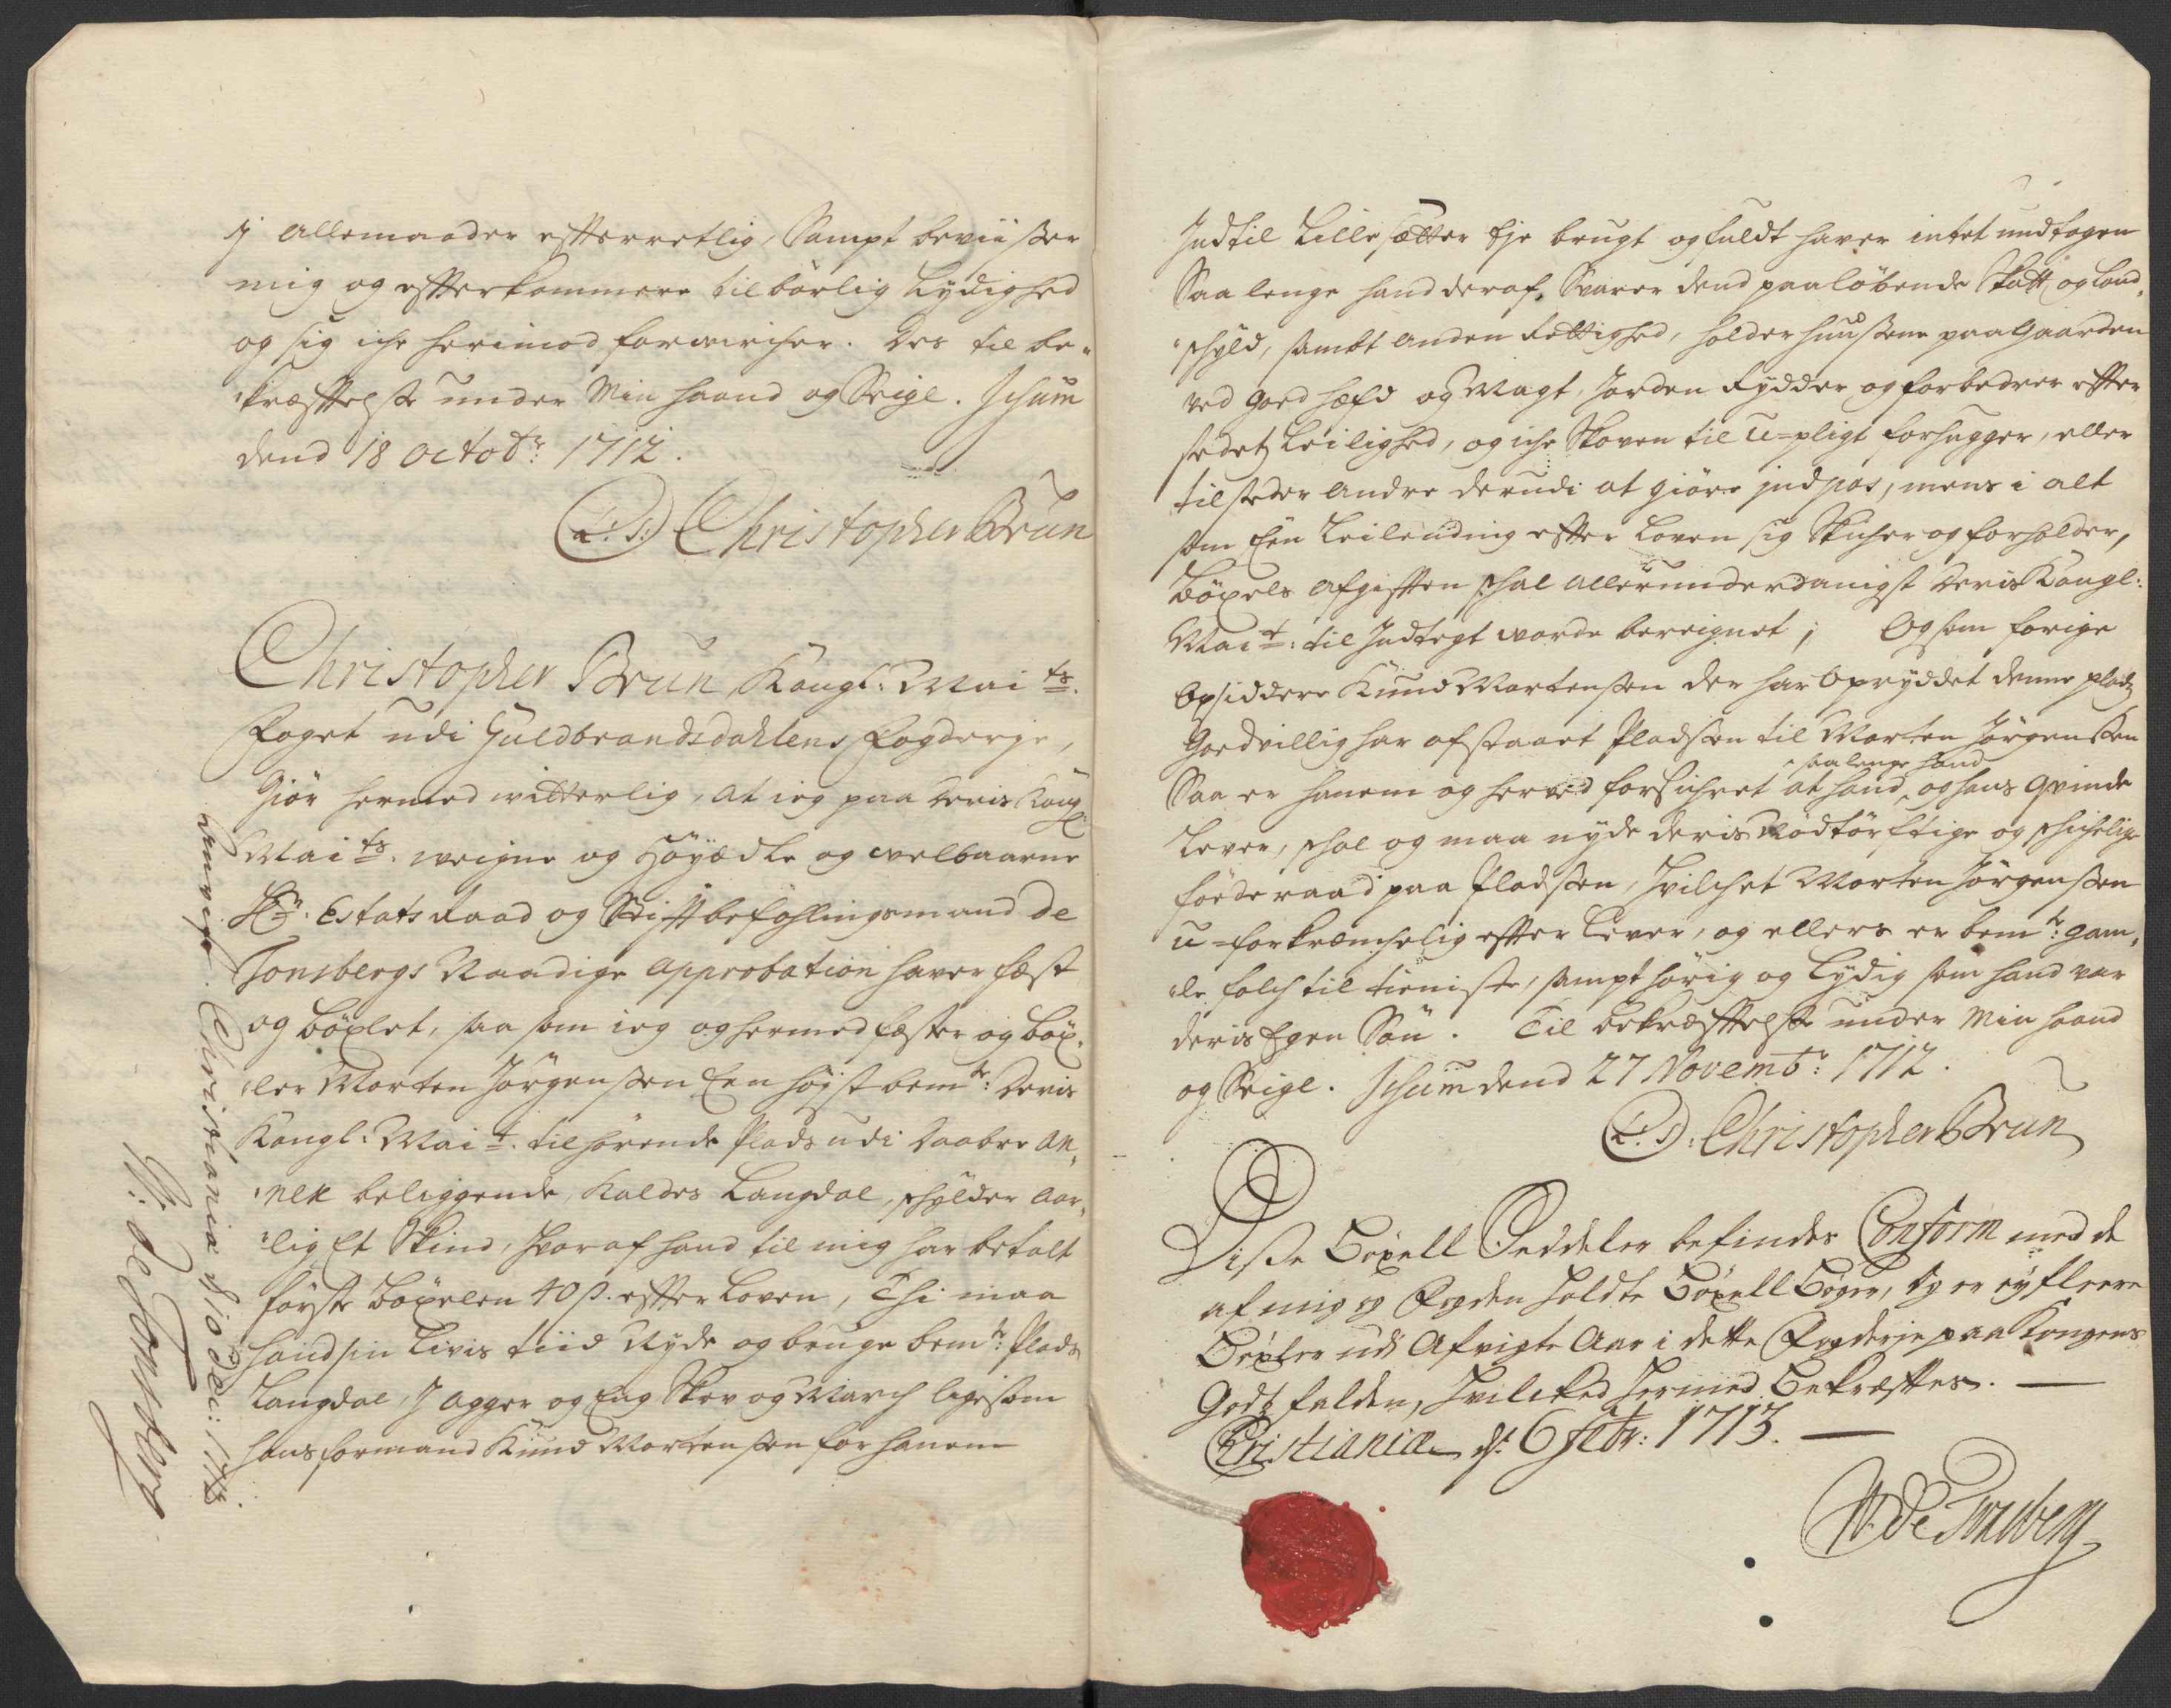 j allemaader efterretlig, Sampt beviiser
mig og efterkommere tilbørlig Lydighed
og sig iche herimod forvircher. Des til be-
kræfftelse under Min haand og Seigl. Schum
dend 18 Octobr: 1712.
(L:S:) Christopher Brun
Christopher Brun Kongl: Maits.
Foget udi Guldbrandsdahlens Fogderje,
Giør hermed witterlig, at ieg paa Deris Kongl
Maits. weigne og Høyædle og velbaarne
Hr: Estats Raad og Stiftbefahlingsmand de
Tonsbergs Naadige Approbation haver fæst
og böxlet, saa som ieg og hermed fæster og böx-
ler Morten Jörgensen Een høyst bemte: Deris
Kongl: Mait. tilhørende Plads udi Daabre An-
nex beliggende, kaldes Langdal, schylder Aar-
lig Et Skind, hvoraf hand til mig har betalt
første böxelen 40 s. efter Loven, Thi maa
hand sin Livis tiid Nyde og bruge bemte: Plads
Langdal, J Agger og Eng Skov og March ligesom
hans formand Knud Mortensen for hanem
Christiania d 10 Dec: 1712.
W: de Tonsberg
Indtil Lille sætter Eje brugt og fuldt haver intet undtagen
Saa lenge hand deraf, Svarer dend paaløbende Skatt og Land-
schyld, sambt anden Rettighed, holder huussene paa Gaarden
ved Goed hæfd og Magt, Jorden Rydder og forbedrer efter
stedetz Leilighed, og iche Skoven til U-pligt forhugger, eller
tilsteder andre derudi at giøre jndpas, mens i alt
som Een Leilending efter Loven sig Skicher og forholder,
Böxels afgifften schal allerunderdanigst Deris Kongl:
Mait: til Indtegt vorde bereignet; Og som forige
Opsiddere Knud Mortensen der har Opryddet denne pladz
Goedvillig har afstaaet Pladsen til Morten Jörgensen
saalenge hand
Saa er hanem og herved forsichret at hand, og hans Qvinde
Lever, schal og maa nyde deris Nødtørftige og schichelige
föederaad paa Pladsen, hvilchet Morten Jörgensen
u-forkrænchelig efter Lever, og ellers er bemte: gam-
le folch til tieniste, sampt hørig og Lydig som hand var
deris Egen Søn. Til bekræfftelse under Min haand
og Seigl. Schum dend 27 Novembr: 1712.
(L:S): Christopher Brun
Disse Böxell Sedeler befindes Conform med de
af mig og Fogden holdte Böxell Bøger, og er ey fleere
Böxler udi Afvigte Aar i dette Fogderje paa Kongens
Godtz falden, hvilcked hermed Bekræfftes.
Christiania dt. 6 Febr: 1713.
W. de Tonsberg